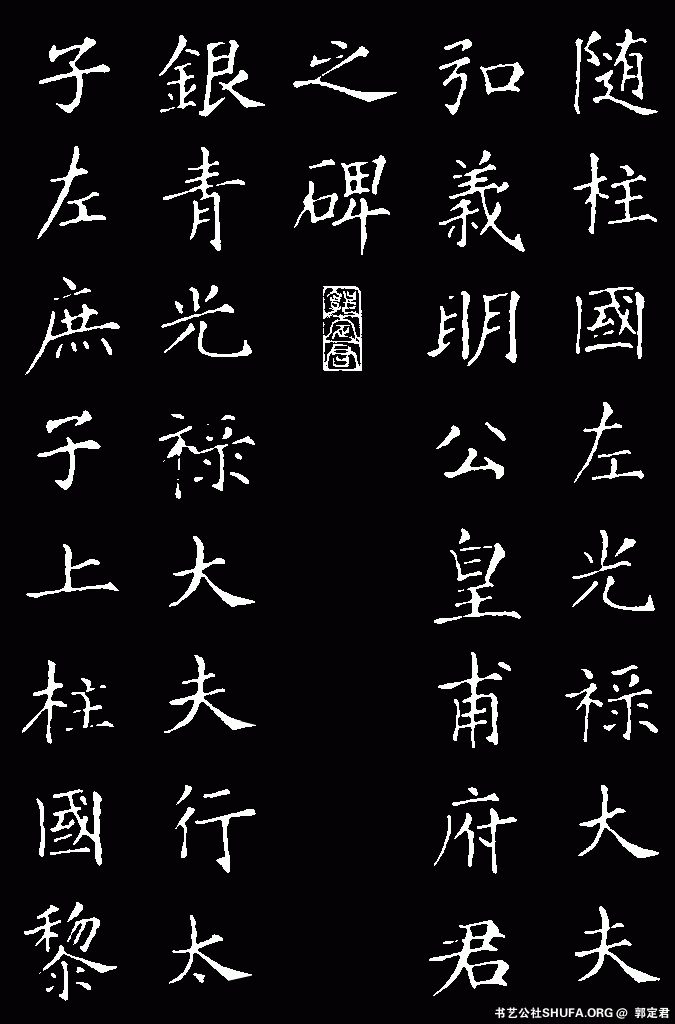 随柱國左光禄大夫
弘義明公皇甫府君
之碑
銀青光禄大夫行太
子左庶子上柱國黎
书艺公社SHUFA.ORG @ 郭定君